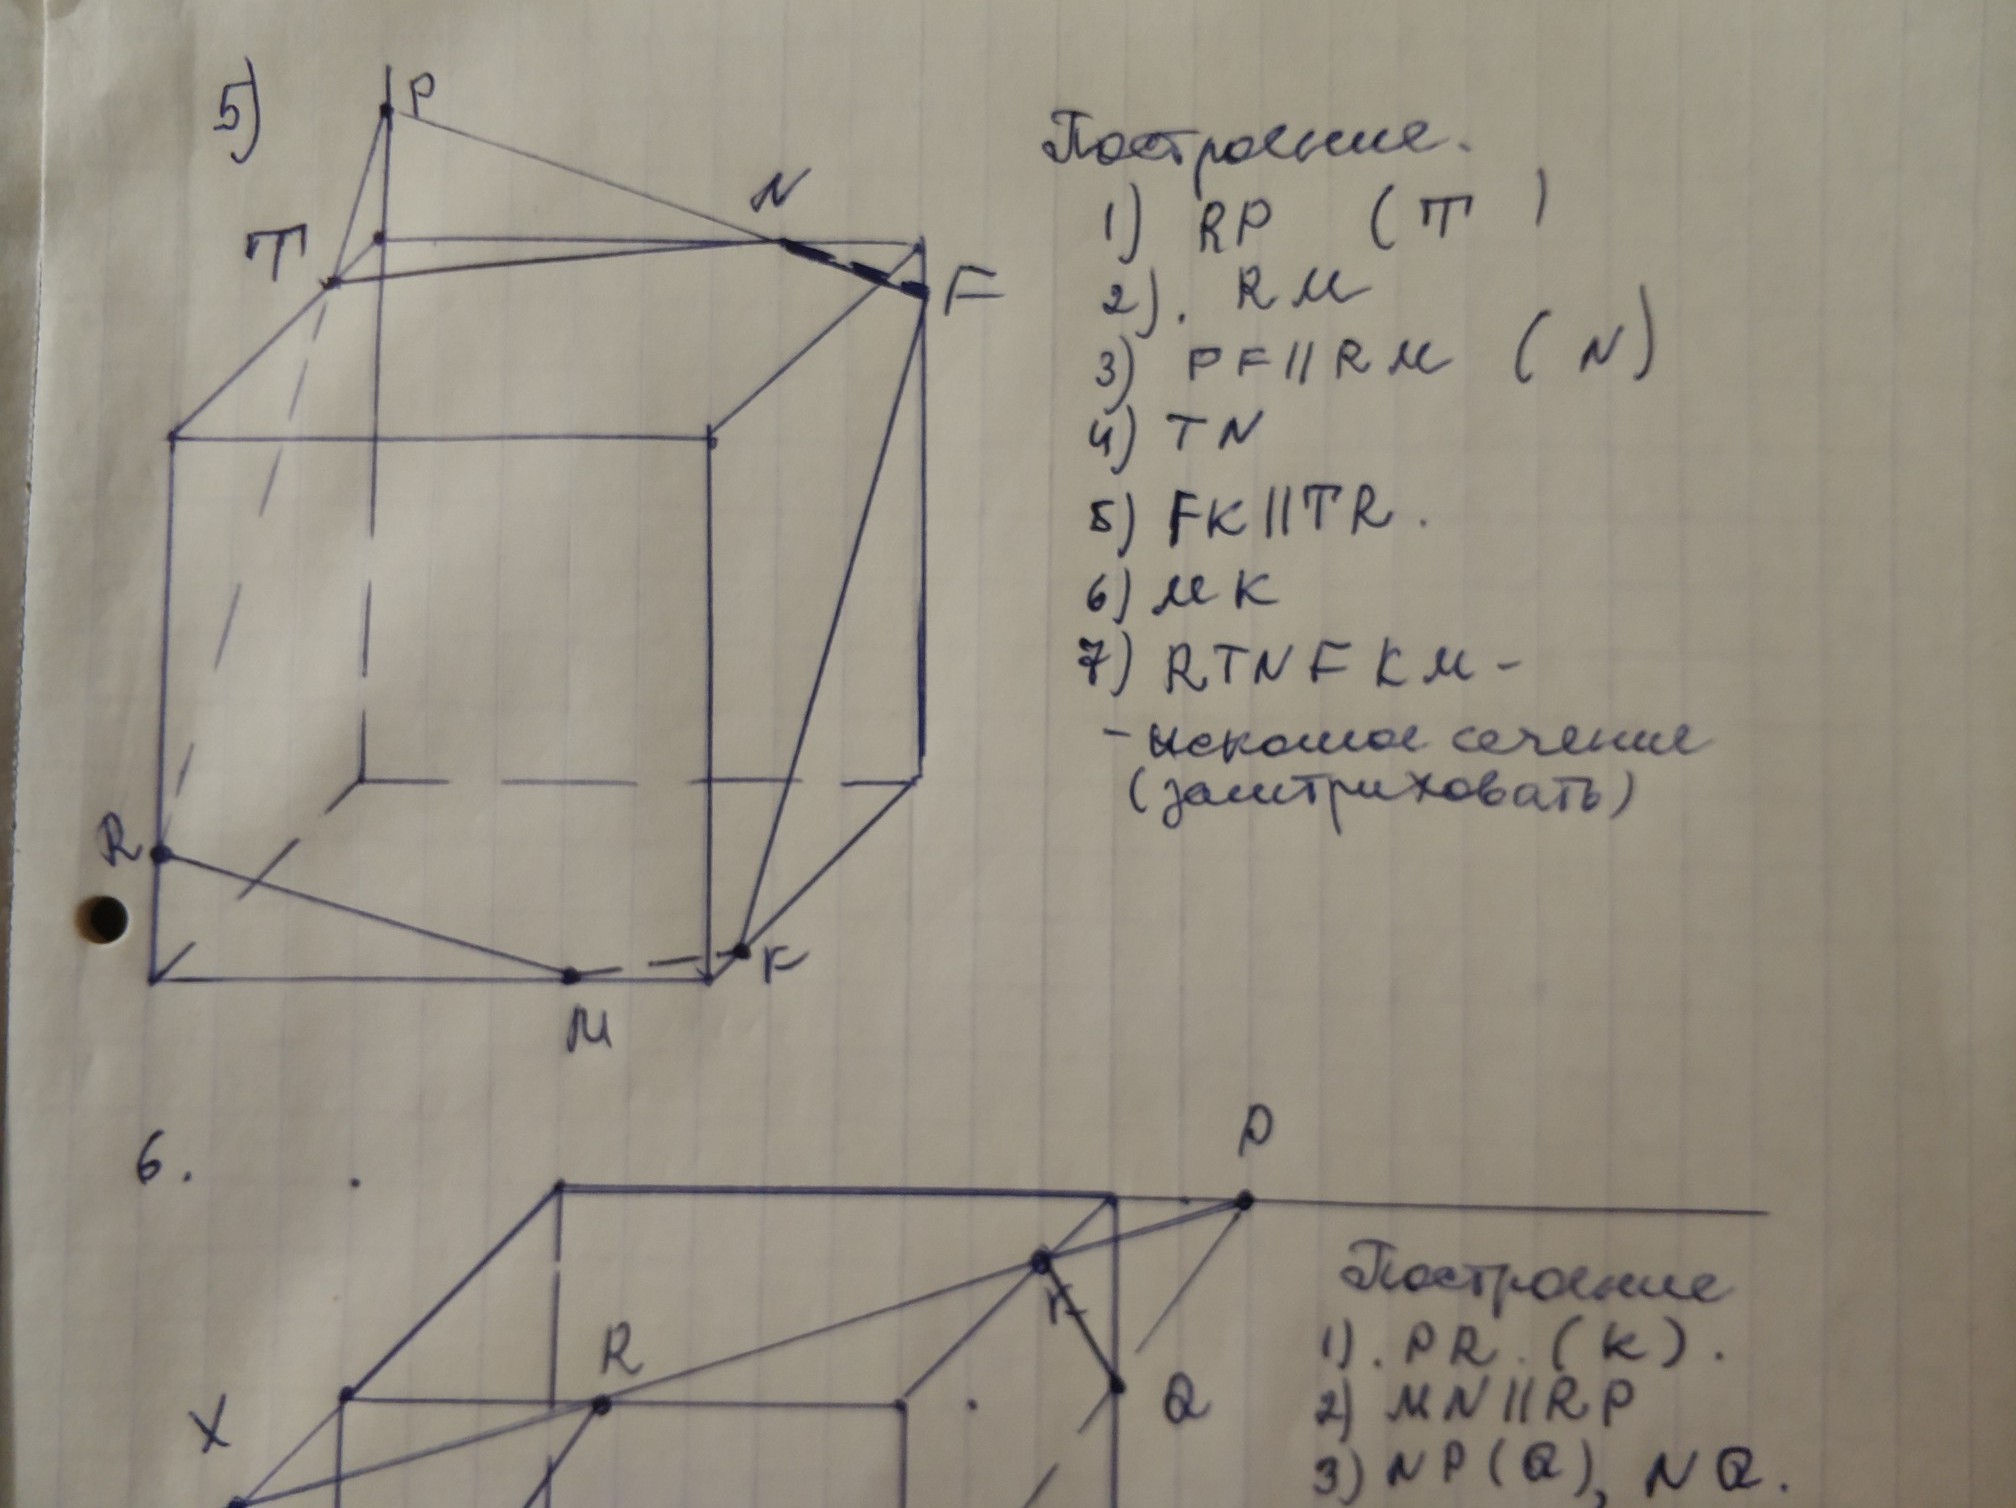 5)
P
N
T
F
R
M
K
Построение.
1) RP (T)
2). RM
3) PF||RM (N)
4) TN
5) FK||TR.
6) MK
7) RTNFKM -
- искомое сечение
(заштриховать)
6.
P
K
R
Q
X
Построение
1). PR. (K).
2) MN||RP
3) NP(Q), NQ.